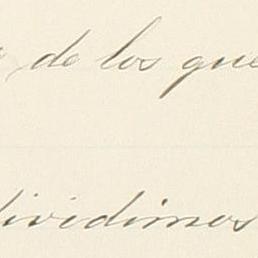 de los que
dividimos